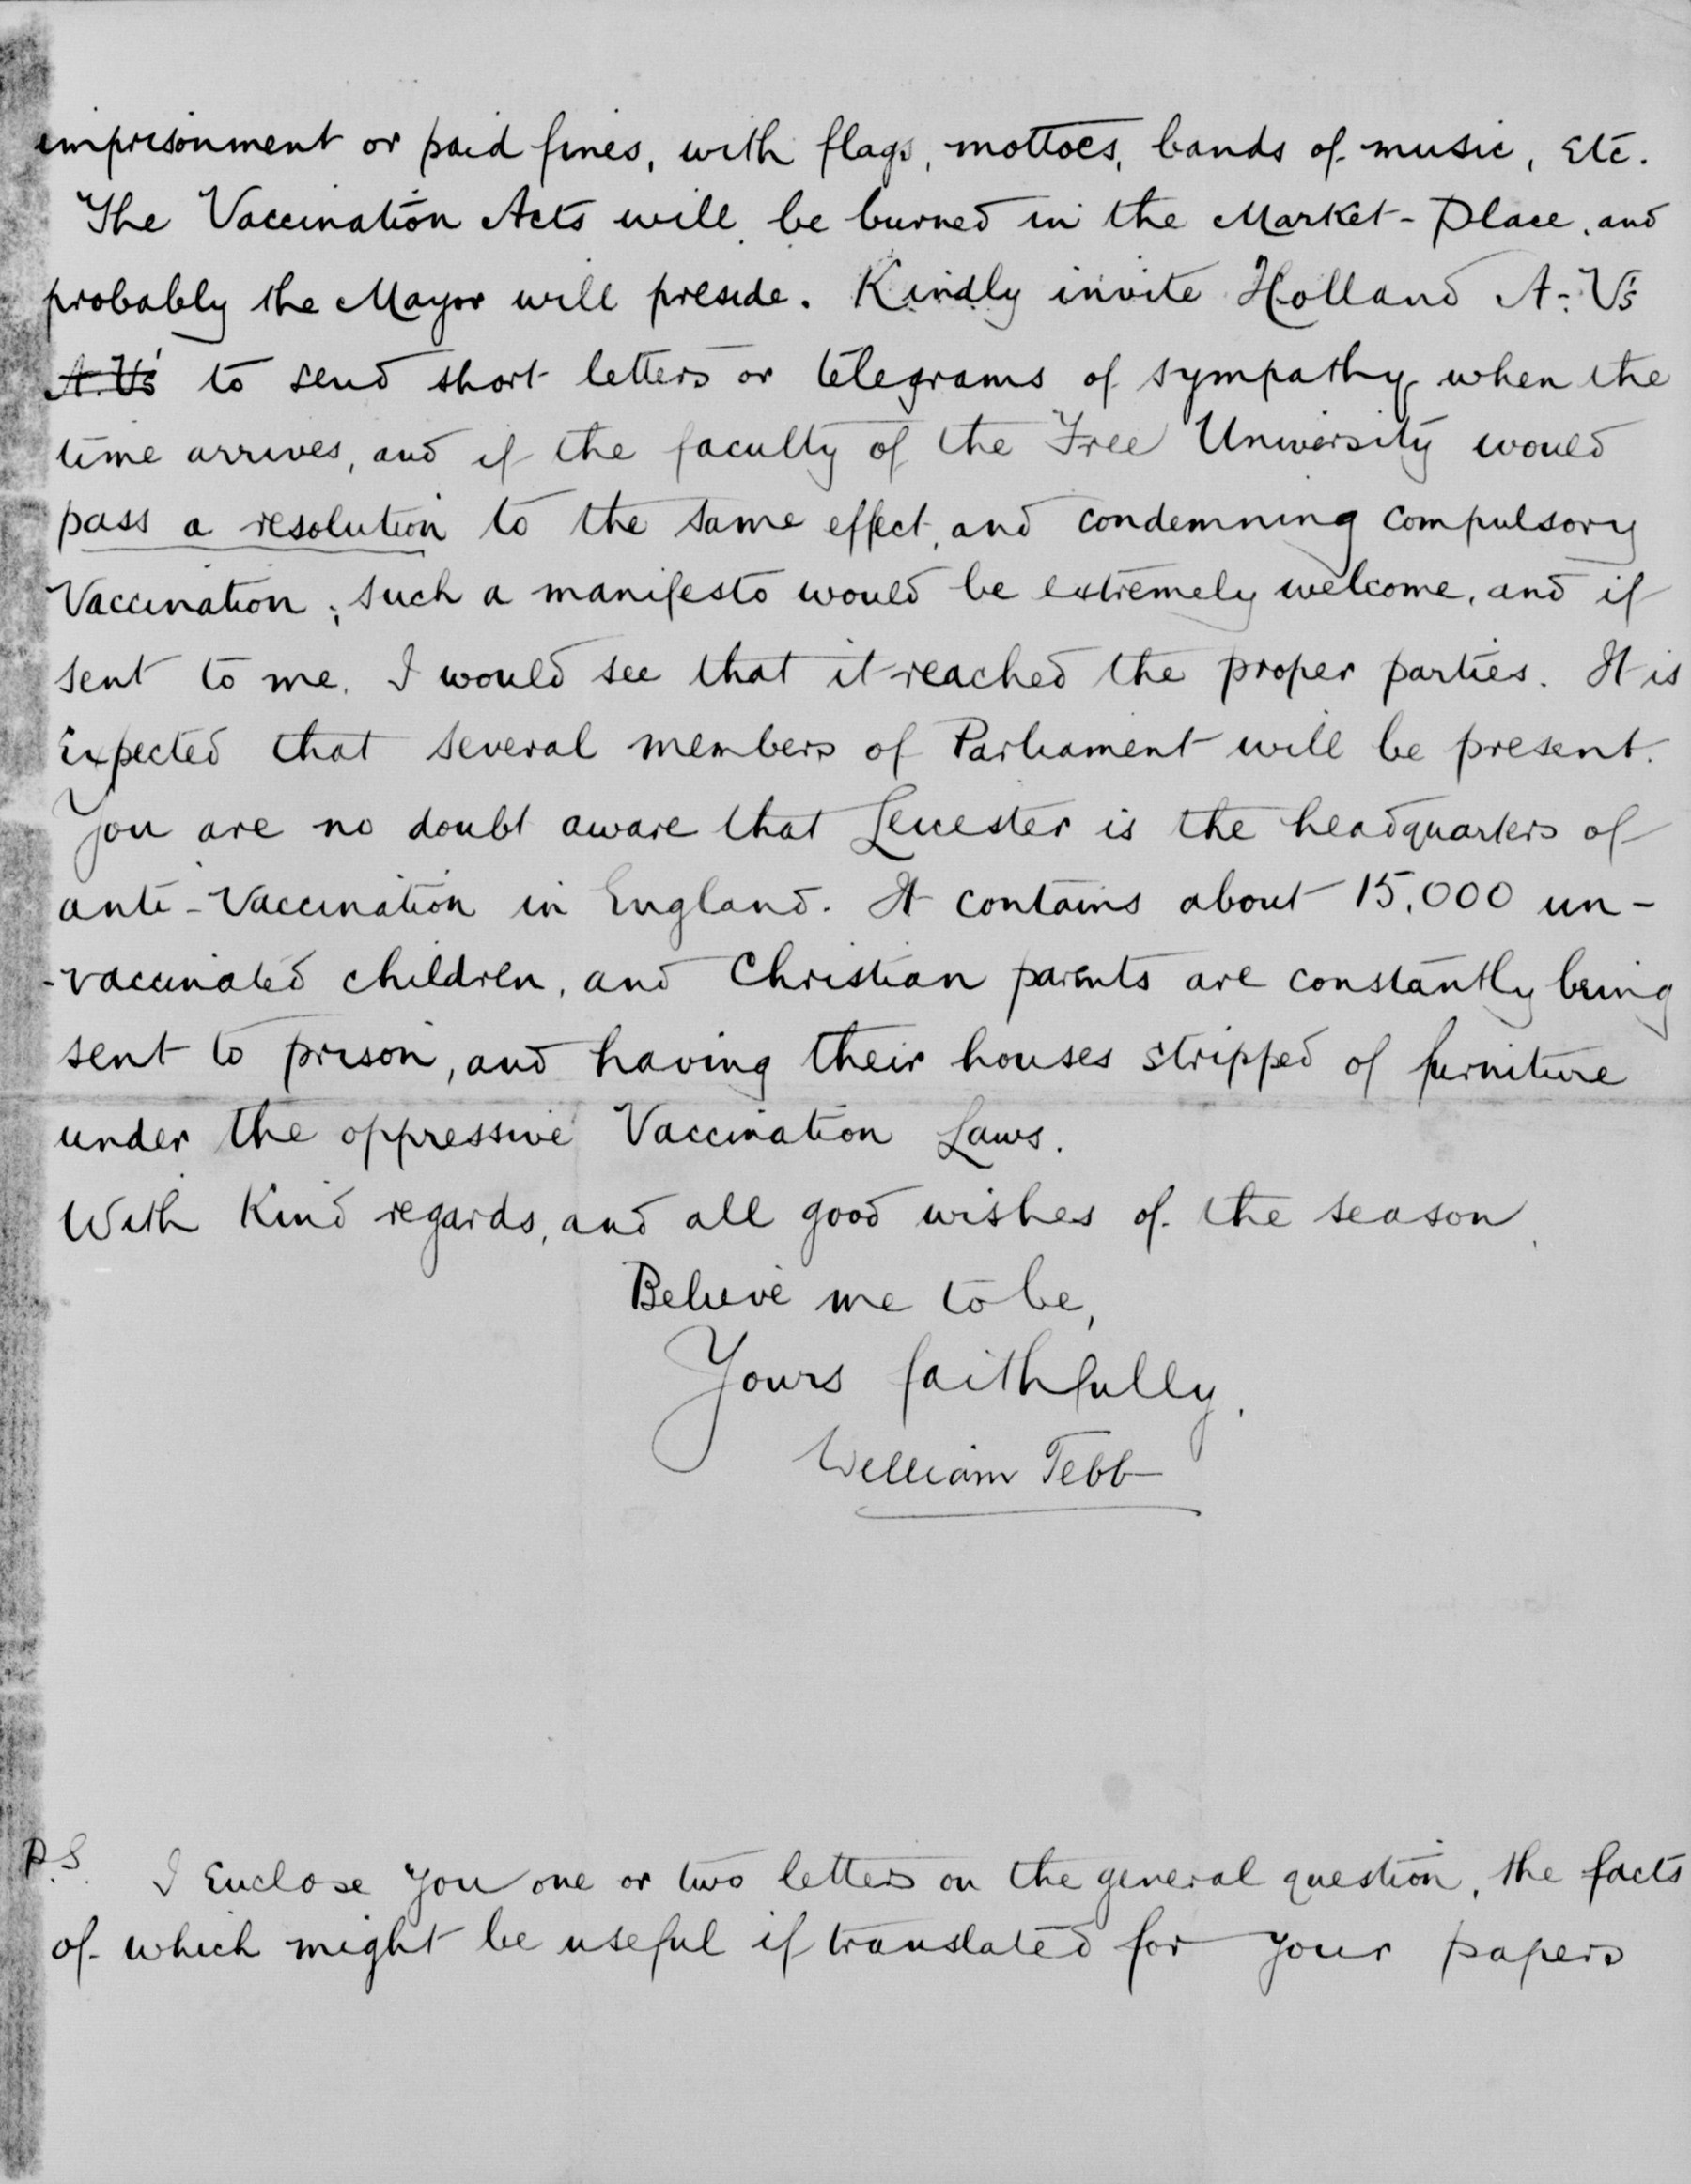 imprisonment or paid fines, with flags, mottoes, bands of music, Etc.
The Vaccination Acts will be burned in the Market-Place, and
probably the Mayor will preside. Kindly invite Holland A-V's
A.V's to send short letters or telegrams of sympathy when the
time arrives, and if the faculty of the Free University would
pass a resolution to the same effect, and condemning compulsory
Vaccination; such a manifesto would be extremely welcome, and if
sent to me, I would see that it reached the proper parties. It is
Expected that several members of Parliament will be present.
You are no doubt aware that Leicester is the headquarters of
anti-Vaccination in England. It contains about 15,000 un-
-vaccinated children, and Christian parents are constantly being
sent to prison, and having their houses stripped of furniture
under the oppressive Vaccination Laws.
With Kind regards, and all good wishes of the season,
Believe me to be,
Yours faithfully,
William Tebb
P.S. I Enclose you one or two letters on the general question, the facts
of which might be useful if translated for your papers